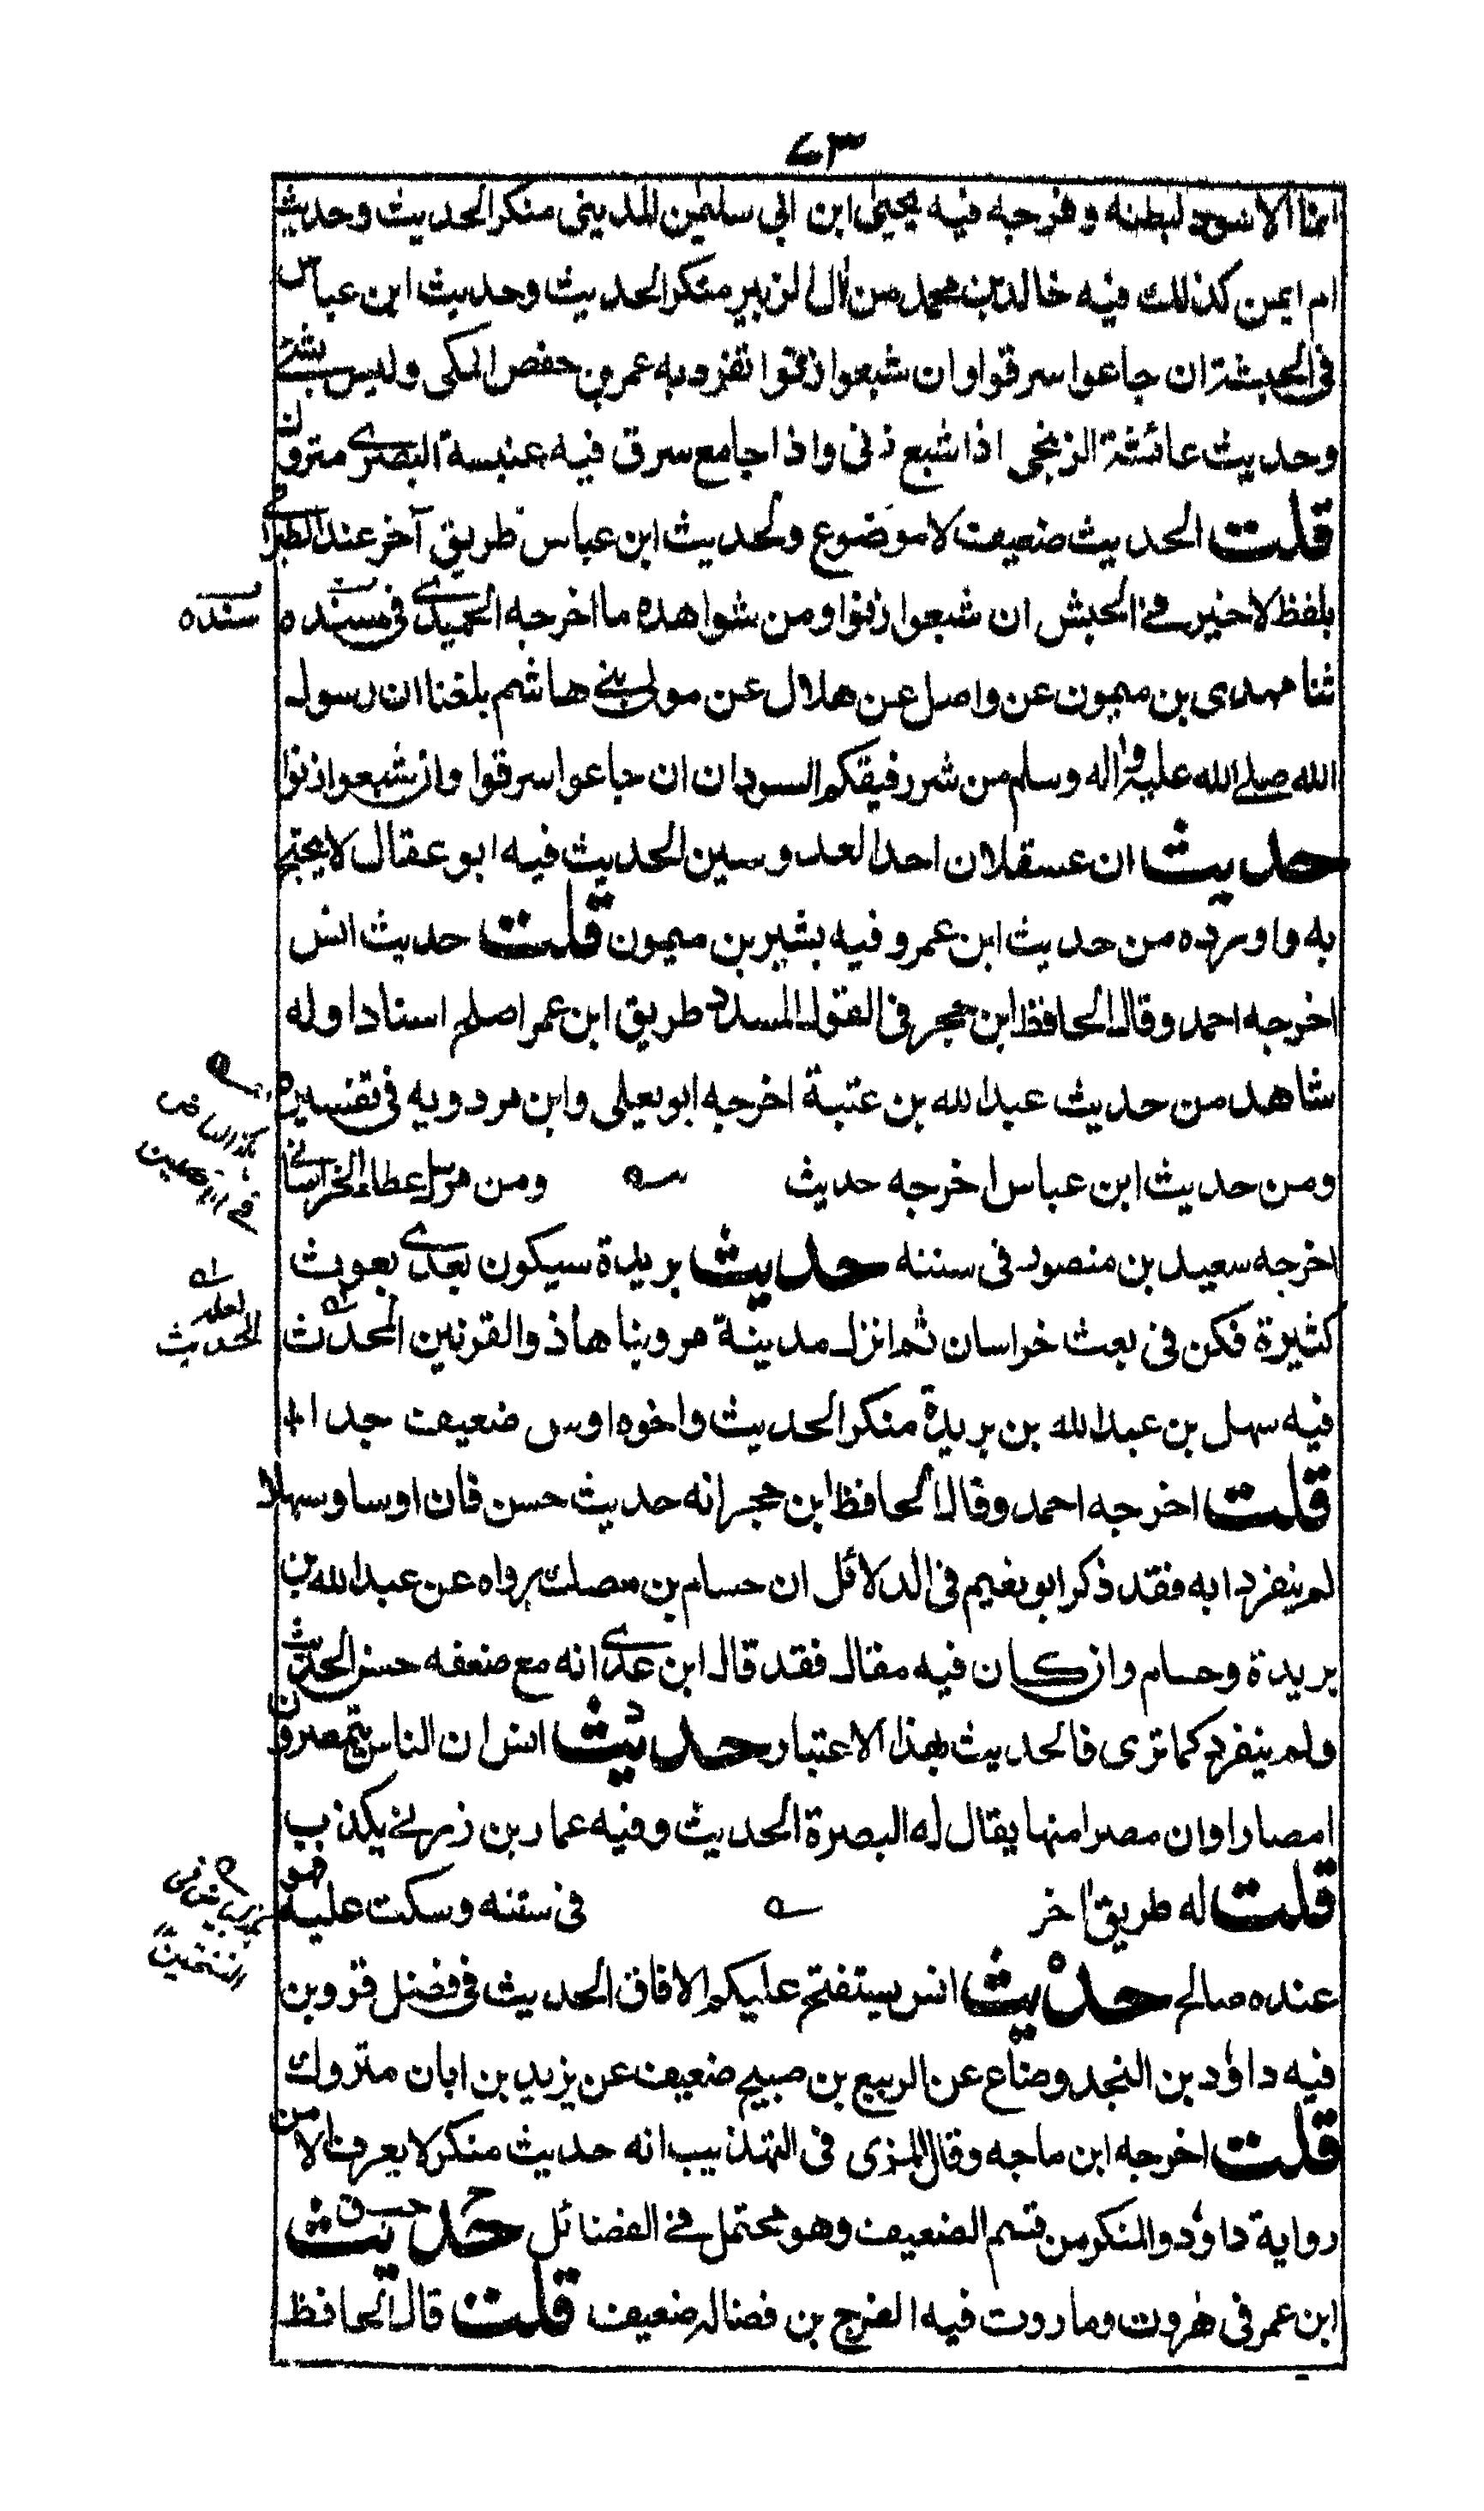 ٧٣
انما الاسود لبطنه وفرجه فيه يحيى ابن ابي سليمٰن المديني منكر الحديث وحديث
ام ايمن كذلك فيه خالد بن محمد من اٰل الزبير منكر الحديث وحديث ابن عباس
فى الحبشة ان جاعوا سرقوا وان شبعوا زنوا تفرد به عمر بن حفص المكى وليس بشئ
وحديث عائشة الزنجى اذا شبع زنى واذا جاع سرق فيه عنبسة البصرى متروك
قلت الحديث ضعيف لا موضوع ولحديث ابن عباس طريق آخر عند الطبرانى
بلفظ لا خير فى الحبش ان شبعوا زنوا ومن شواهده ما اخرجه الحميدى فى مسنده
سنده
ثنا مهدى بن ميمون عن واصل عن هلال عن مولى بنى هاشم بلغنا ان رسول
الله صلى الله عليه واٰله وسلم من شر رقيقكم السودان ان جاعوا سرقوا وان شبعوا زنوا
حديث ان عسقلان احد العروسين الحديث فيه ابو عقال لا يحتج
به واورده من حديث ابن عمر وفيه بشير بن ميمون قلت حديث انس
اخرجه احمد وقال الحافظ ابن حجر فى القول المسدد طريق ابن عمر اصلح اسنادا وله
شاهد من حديث عبد الله بن عتبة اخرجه ابو يعلى وابن مردويه فى تفسيره
ومن حديث ابن عباس اخرجه حديث ومن مرسل عطاء الخراسانى
اخرجه سعيد بن منصور فى سننه حديث بريدة سيكون بعدى بعوث
كثيرة فكن فى بعث خراسان ثم انزل مدينة مرو بناها ذو القرنين المحدث
لعله
الحديث
فيه سهل بن عبد الله بن بريدة منكر الحديث واخوه اوس ضعيف جدا
قلت اخرجه احمد وقال الحافظ ابن حجر انه حديث حسن فان اوسا وسهلا
لم ينفردا به فقد ذكر ابو نعيم فى الدلائل ان حسام بن مصك رواه عن عبد الله بن
بريدة وحسام وان كان فيه مقال فقد قال ابن عدى انه مع ضعفه حسن الحديث
ولم ينفرد كما ترى فالحديث بهذا الاعتبار حديث انس ان الناس يتمصرون
امصارا وان مصرا منها يقال له البصرة الحديث وفيه عمار بن زربى يكذب
قلت له طريق اٰخر فى سننه وسكت عليه فهو
عنده صالح حديث انس ستفتح عليكم الافاق الحديث فى فضل قزوين
فيه داوٗد بن المحبر وضاع عن الربيع بن صبيح ضعيف عن يزيد بن ابان متروك
قلت اخرجه ابن ماجه وقال المزى فى التهذيب انه حديث منكر لا يعرف الا من
رواية داوٗد والمنكر من قسم الضعيف وهو محتمل فى الفضائل حديث
ابن عمر فى هٰروت وماروت فيه الفرج بن فضاله ضعيف قلت قال الحافظ